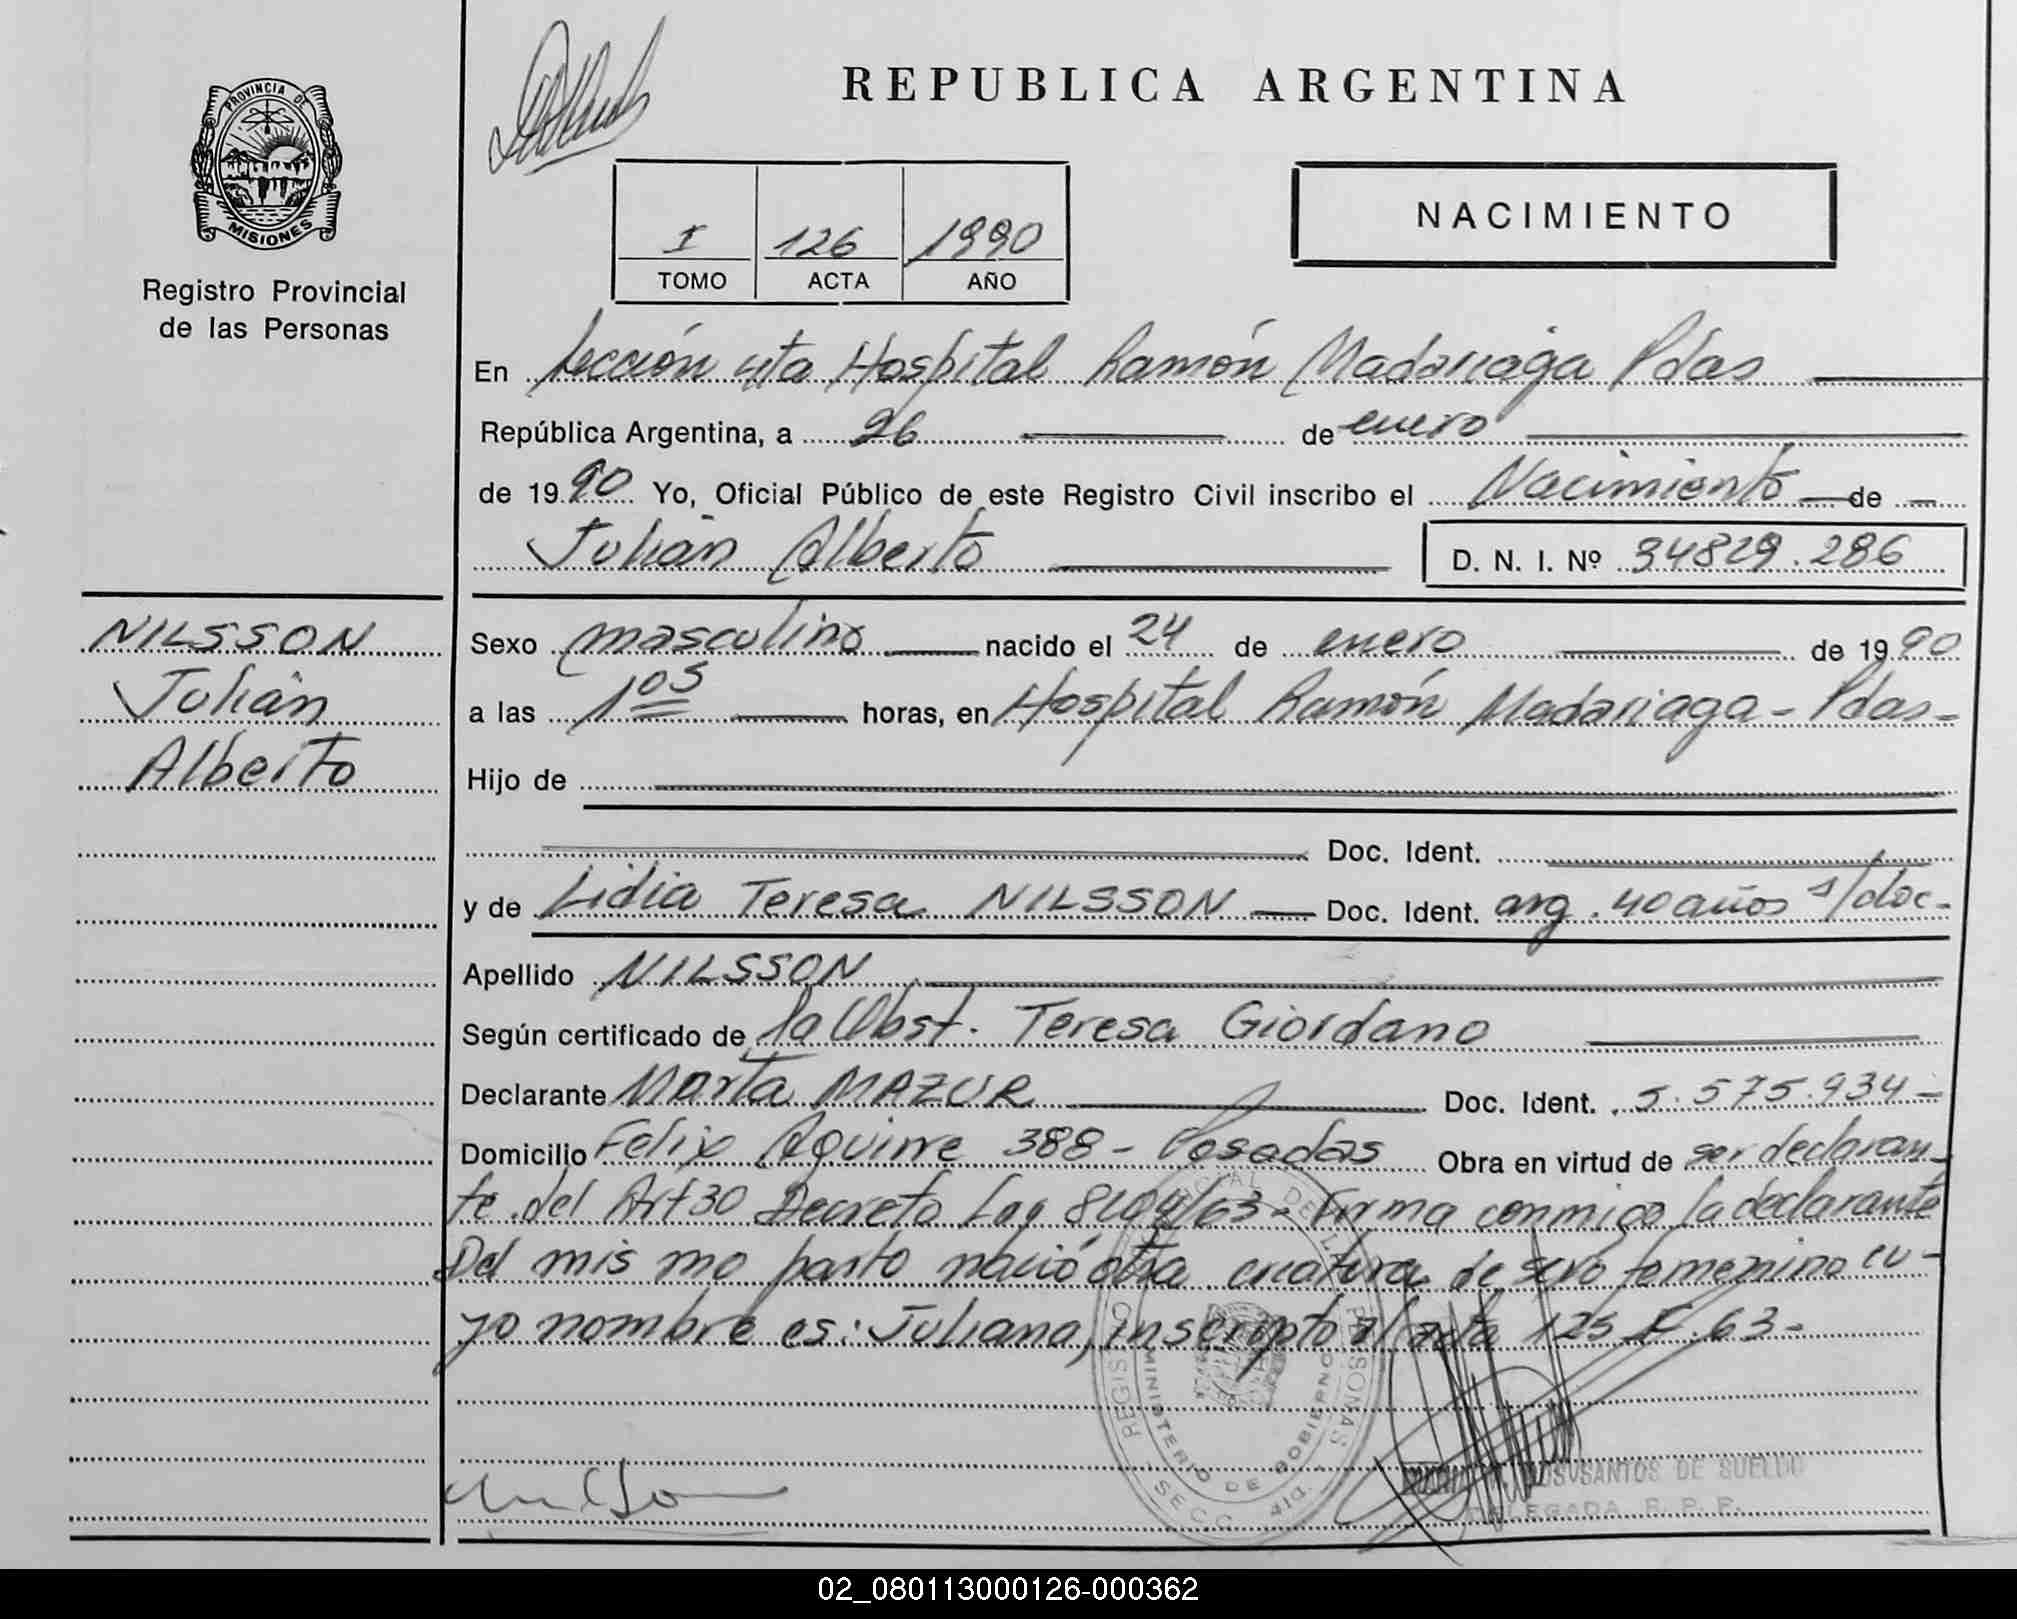 REPUBLICA ARGENTINA
PROVINCIA DE
MISIONES
Registro Provincial
de las Personas
I 126 1990
TOMO ACTA AÑO
NACIMIENTO
En Sección 4ta Hospital Ramón Madariaga Pdas
República Argentina, a 26 de enero
de 1990 Yo, Oficial Público de este Registro Civil inscribo el Nacimiento de
Julián Alberto D. N. I. Nº 34829.286
NILSSON
Julián
Alberto
Sexo masculino nacido el 24 de enero de 1990
a las 1 05 horas, en Hospital Ramón Madariaga - Pdas -
Hijo de
Doc. Ident.
y de Lidia Teresa NILSSON Doc. Ident. arg. 40 años s/doc-
Apellido NILSSON
Según certificado de la Obst. Teresa Giordano
Declarante Marta MAZUR Doc. Ident. 5.575.934-
Domicilio Felix Aguirre 388 - Posadas Obra en virtud de ser declaran-
te del Art 30 Decreto Ley 8204/63 - Firma conmigo la declarante
Del mismo parto nació otra criatura de sexo femenino cu-
yo nombre es: Juliana, inscripto al acta 125 F. 63-
REGISTRO PROVINCIAL DE LAS PERSONAS
MINISTERIO DE GOBIERNO
SECC.
DOS SANTOS DE SUELDO
DELEGADA R. P. P.
02_080113000126-000362